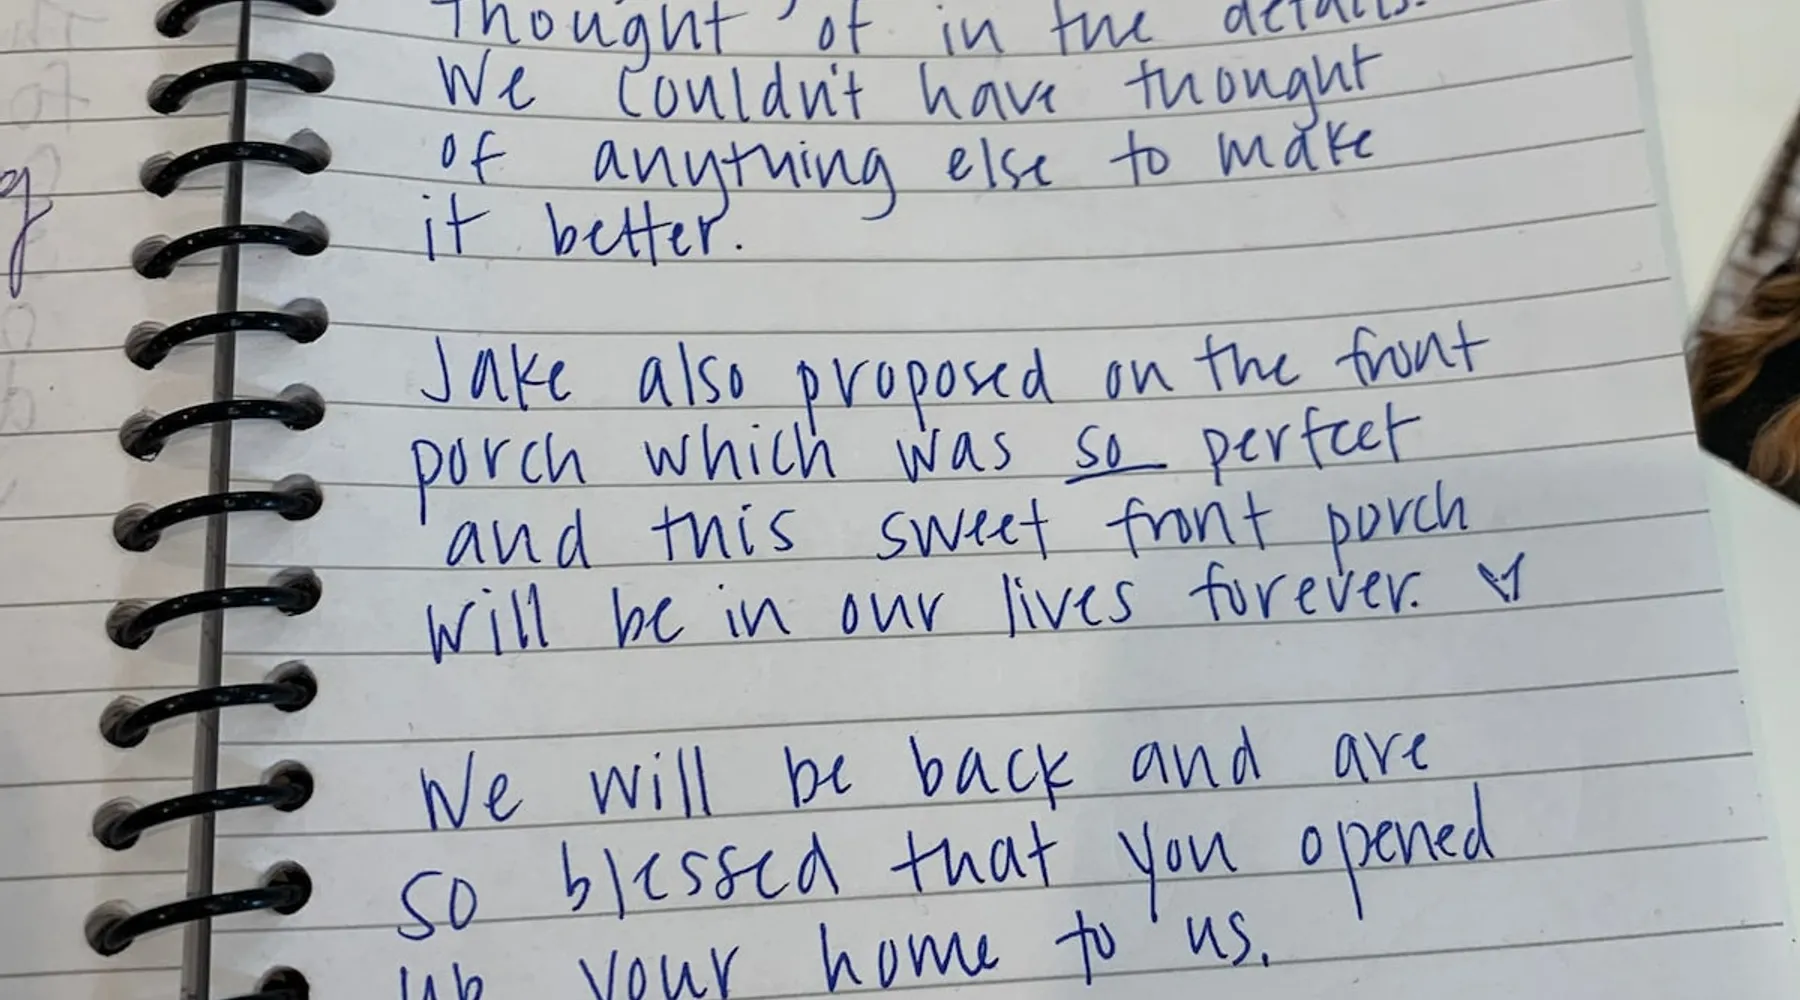 Thought of in the details.
We couldn't have thought
of anything else to make
it better.
Jake also proposed on the front
porch which was so perfect
and this sweet front porch
will be in our lives forever.
We will be back and are
so blessed that you opened
up your home to us.